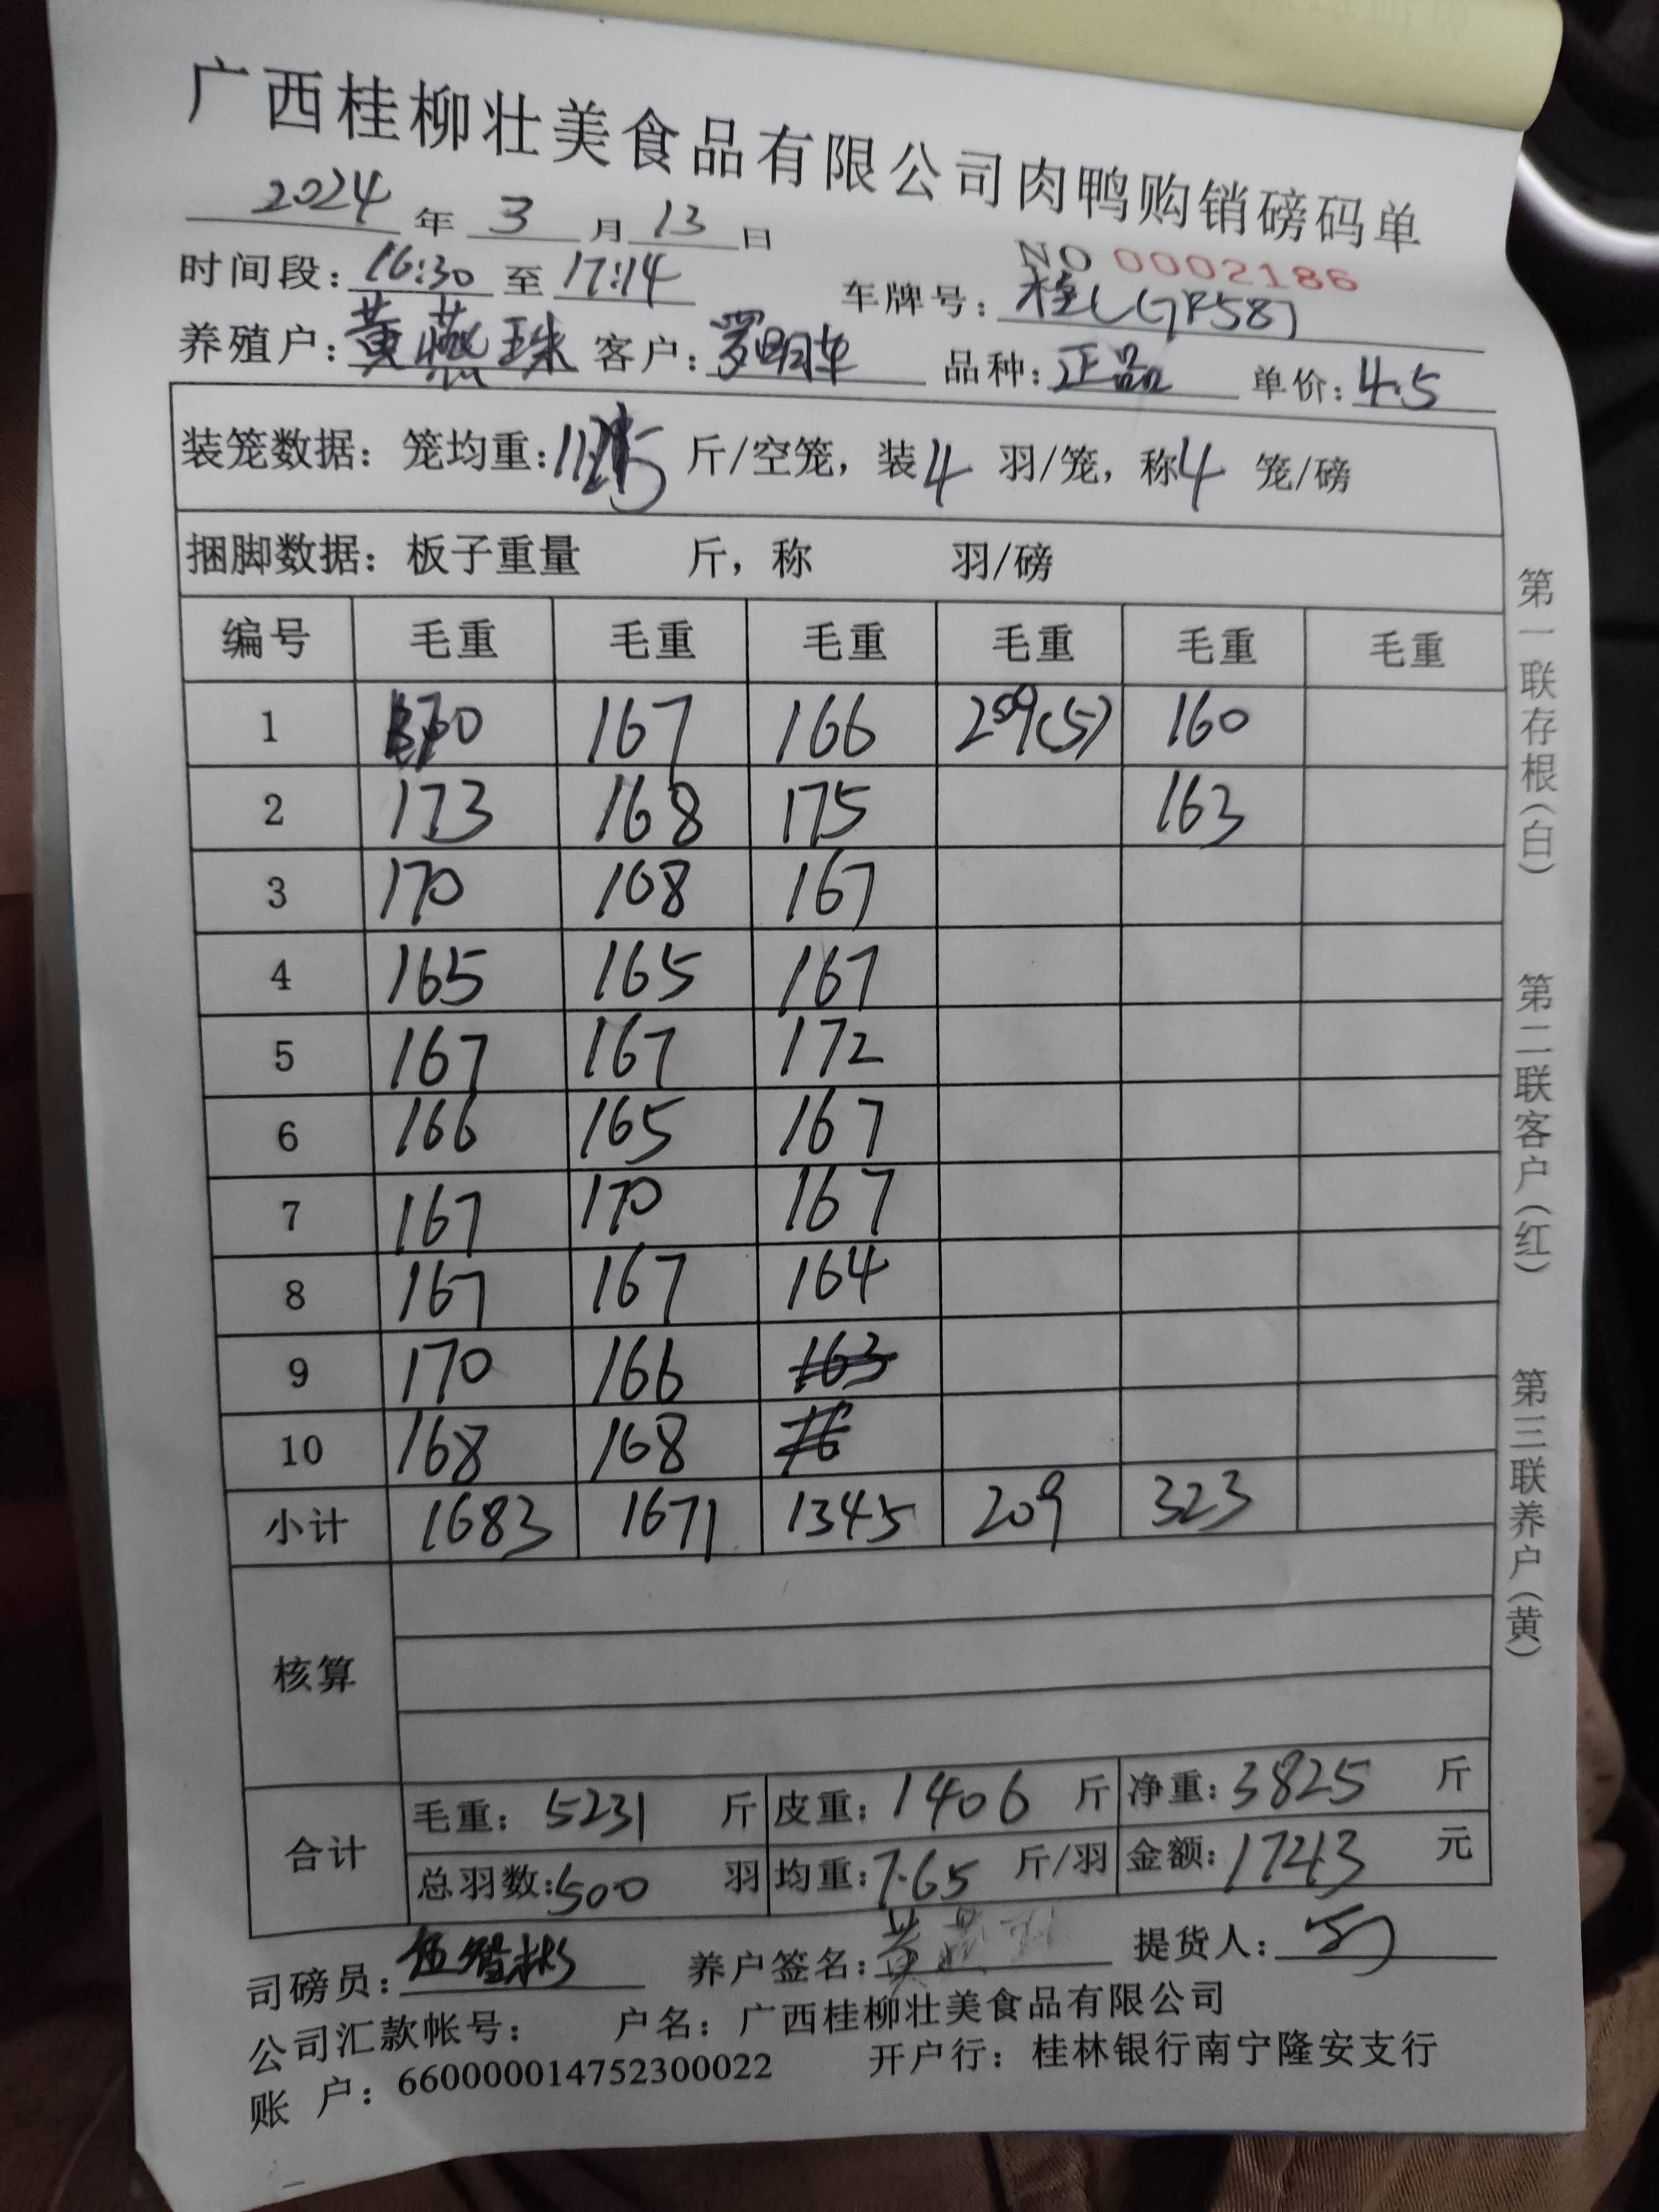 广西桂柳壮美食品有限公司肉鸭购销磅码单
2024 年 3 月 13 日
NO 0002186
时间段：16:30 至 17:14 车牌号：
养殖户：黄燕珠 客户：罗明华 品种：正品 单价：4.5
装笼数据：笼均重： 斤/空笼，装4 羽/笼，称4 笼/磅
捆脚数据：板子重量 斤，称 羽/磅
编号 毛重 毛重 毛重 毛重 毛重 毛重
1 170 167 166 209(5) 160
2 173 168 175 163
3 170 168 167
4 165 165 167
5 167 167 172
6 166 165 167
7 167 170 167
8 167 167 164
9 170 166 163
10 168 168 16
小计 1683 1671 1345 209 323
核算
合计
毛重：5231 斤 皮重：1406 斤 净重：3825 斤
总羽数：500 羽 均重：7.65 斤/羽 金额：17213 元
司磅员： 养户签名：黄燕珠 提货人：
公司汇款帐号： 户名：广西桂柳壮美食品有限公司
账 户：660000014752300022 开户行：桂林银行南宁隆安支行
第一联存根（白） 第二联客户（红） 第三联养户（黄）